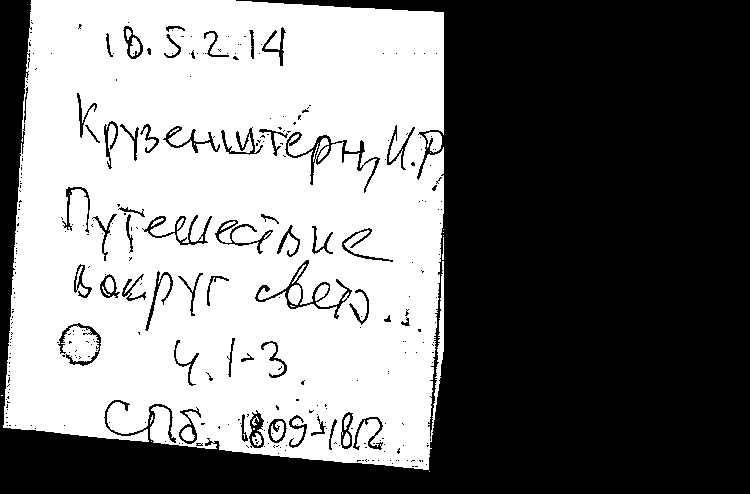 18.5.2.14
Крузенштерн, И.Ф.
Путешествие
вокруг света...
Ч. 1-3.
СПб., 1809-1812.